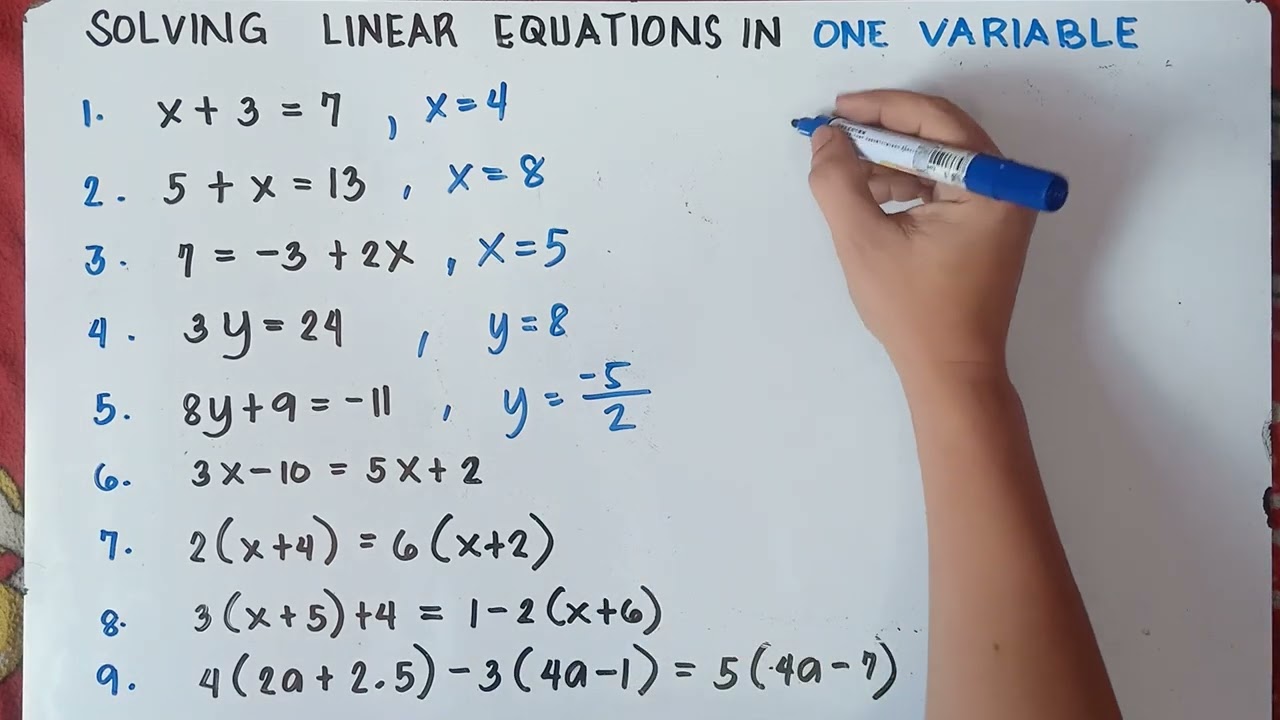 SOLVING LINEAR EQUATIONS IN ONE VARIABLE
1. x + 3 = 7 , x = 4
2. 5 + x = 13 , x = 8
3. 7 = -3 + 2x , x = 5
4. 3y = 24 , y = 8
5. 8y + 9 = -11 , y = -5/2
6. 3x - 10 = 5x + 2
7. 2(x+4) = 6(x+2)
8. 3(x+5)+4 = 1-2(x+6)
9. 4(2a+2.5)-3(4a-1) = 5(4a-7)